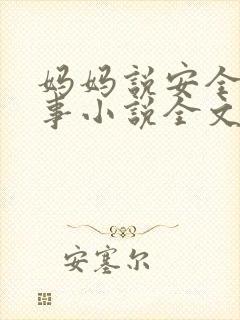 妈妈说安全
事小说全文
安塞尔